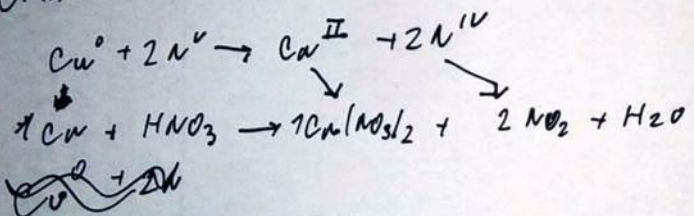 Cu⁰ + 2N^V → Cu^II + 2N^IV
1Cu + HNO₃ → 1Cu(NO₃)₂ + 2NO₂ + H₂O